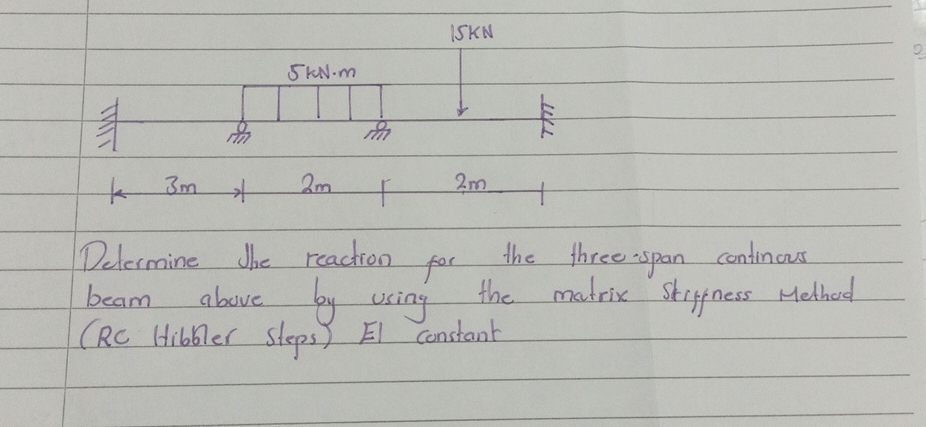 15KN
5kN.m
3m 2m 2m
Determine the reaction for the three-span continous
beam above by using the matrix Stiffness Method
(RC Hibbler steps) EI constant